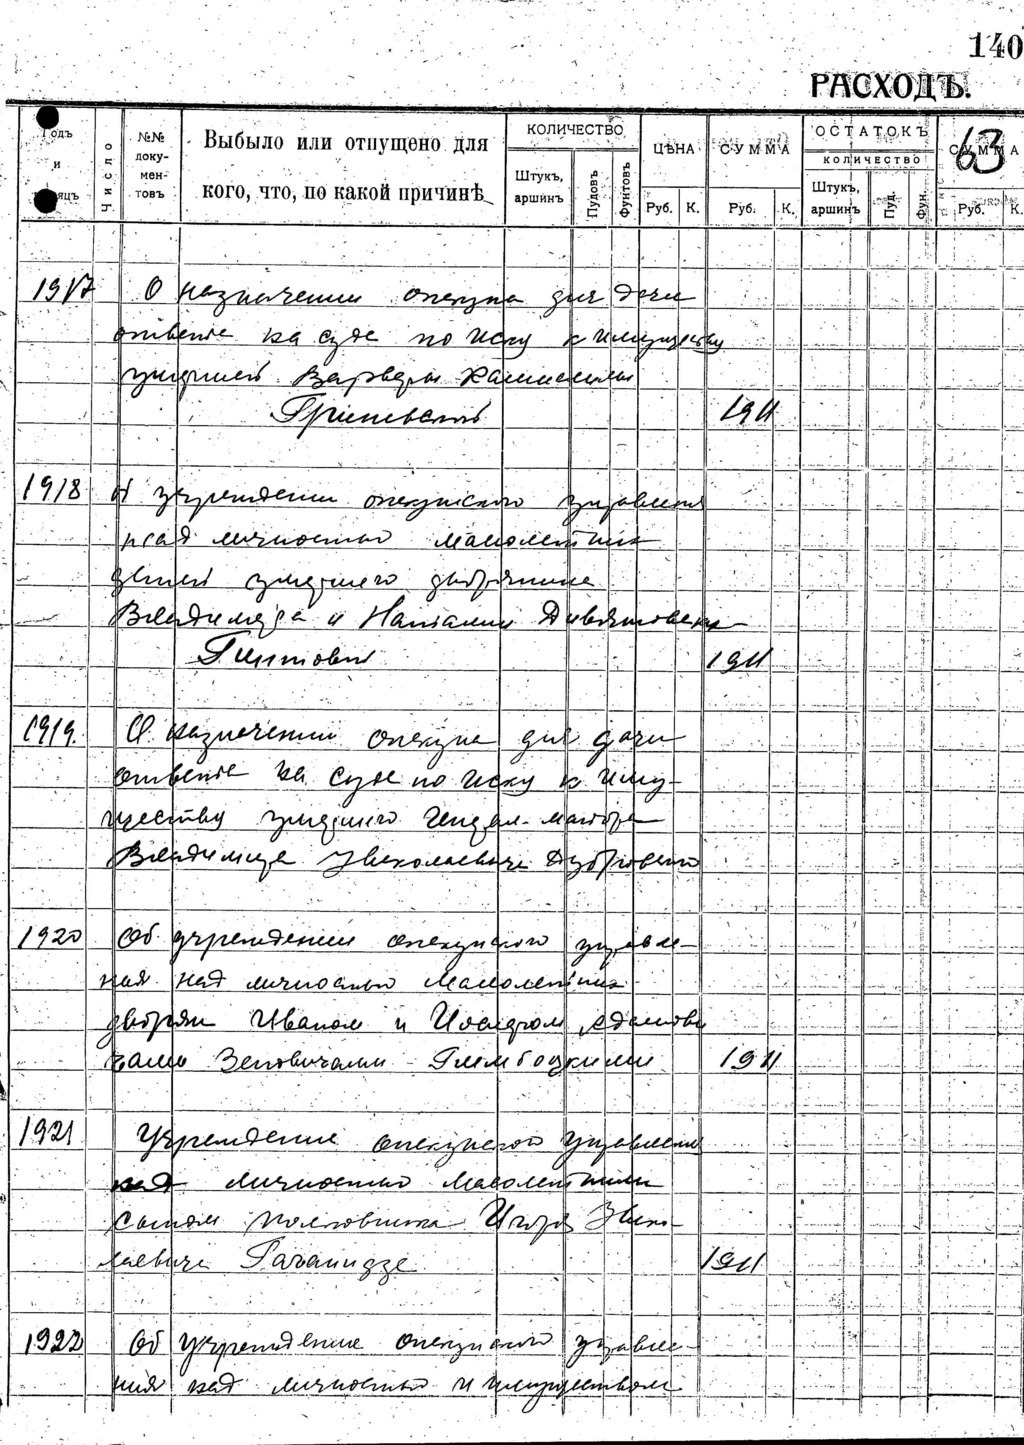 140
РАСХОДЪ.
63
Годъ и мѣсяцъ
Число
№№ доку-мен-товъ
Выбыло или отпущено для кого, что, по какой причинѣ
КОЛИЧЕСТВО
Штукъ, аршинъ
Пудовъ
Фунтовъ
ЦѢНА
Руб. К.
СУММА
Руб. К.
ОСТАТОКЪ
КОЛИЧЕСТВО
Штукъ, аршинъ
Пуд.
Фун.
СУММА
Руб. К.
1917 О назначении опекуна для дачи
ответа на суде по иску к имуществу
умершей Варвары
1911
1918 Об учреждении опекунского управления
над личностью малолетних
детей умершего дворянина
Владимира и Наталии
1911
1919. О назначении опекуна для дачи
ответа на суде по иску к иму-
ществу умершего Генерал-майора
Владимира Николаевича
1920 Об учреждении опекунского управле-
ния над личностью малолетних
дворян Иваном и Иосифом Адамови
чами Зеновичами - Глембоцкими 1911
1921 Учреждение опекунского управления
над личностью малолетним
сыном полковника Игоря Нико-
лаевича
1911
1922 Об учреждение опекунского управле-
ния над личностью и имуществом